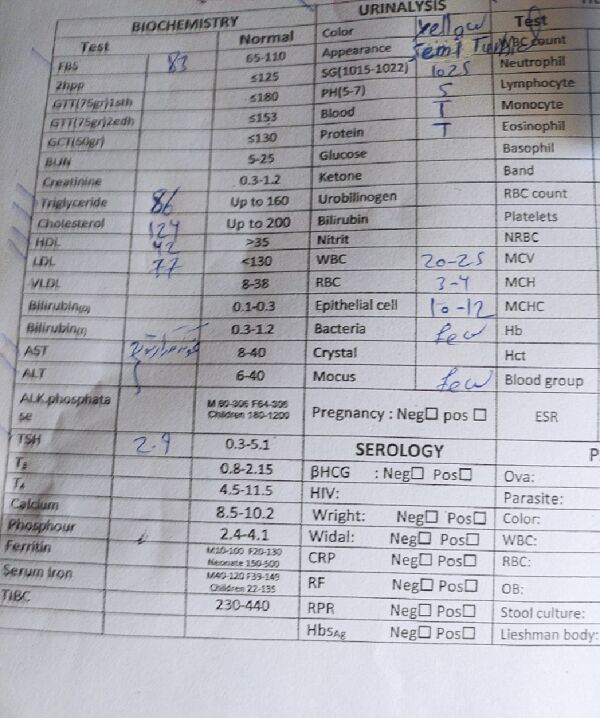 BIOCHEMISTRY
Test Normal
FBS 83 65-110
2hpp ≤125
GTT(75gr)1sth ≤180
GTT(75gr)2edh ≤153
GCT(50gr) ≤130
BUN 5-25
Creatinine 0.3-1.2
Triglyceride 86 Up to 160
Cholesterol 124 Up to 200
HDL 42 >35
LDL 77 <130
VLDL 8-38
Bilirubin(D) 0.1-0.3
Bilirubin(T) 0.3-1.2
AST 8-40
ALT 6-40
ALK.phosphata
se
M 80-306 F64-306
Children 180-1200
TSH 2.9 0.3-5.1
T₃ 0.8-2.15
T₄ 4.5-11.5
Calcium 8.5-10.2
Phosphour 2.4-4.1
Ferritin M10-100 F20-130
Neonate 150-500
Serum iron M40-120 F39-149
Children 22-135
TIBC 230-440
URINALYSIS
Color yellow
Appearance Semi Turbid
SG(1015-1022) 1025
PH(5-7) 5
Blood T
Protein T
Glucose
Ketone
Urobilinogen
Bilirubin
Nitrit
WBC 20-25
RBC 3-4
Epithelial cell 10-12
Bacteria few
Crystal
Mocus few
Pregnancy : Neg☐ pos ☐
SEROLOGY
βHCG : Neg☐ Pos☐
HIV:
Wright: Neg☐ Pos☐
Widal: Neg☐ Pos☐
CRP Neg☐ Pos☐
RF Neg☐ Pos☐
RPR Neg☐ Pos☐
HbsAg Neg☐ Pos☐
Test
WBC count
Neutrophil
Lymphocyte
Monocyte
Eosinophil
Basophil
Band
RBC count
Platelets
NRBC
MCV
MCH
MCHC
Hb
Hct
Blood group
ESR
Ova:
Parasite:
Color:
WBC:
RBC:
OB:
Stool culture:
Lieshman body: